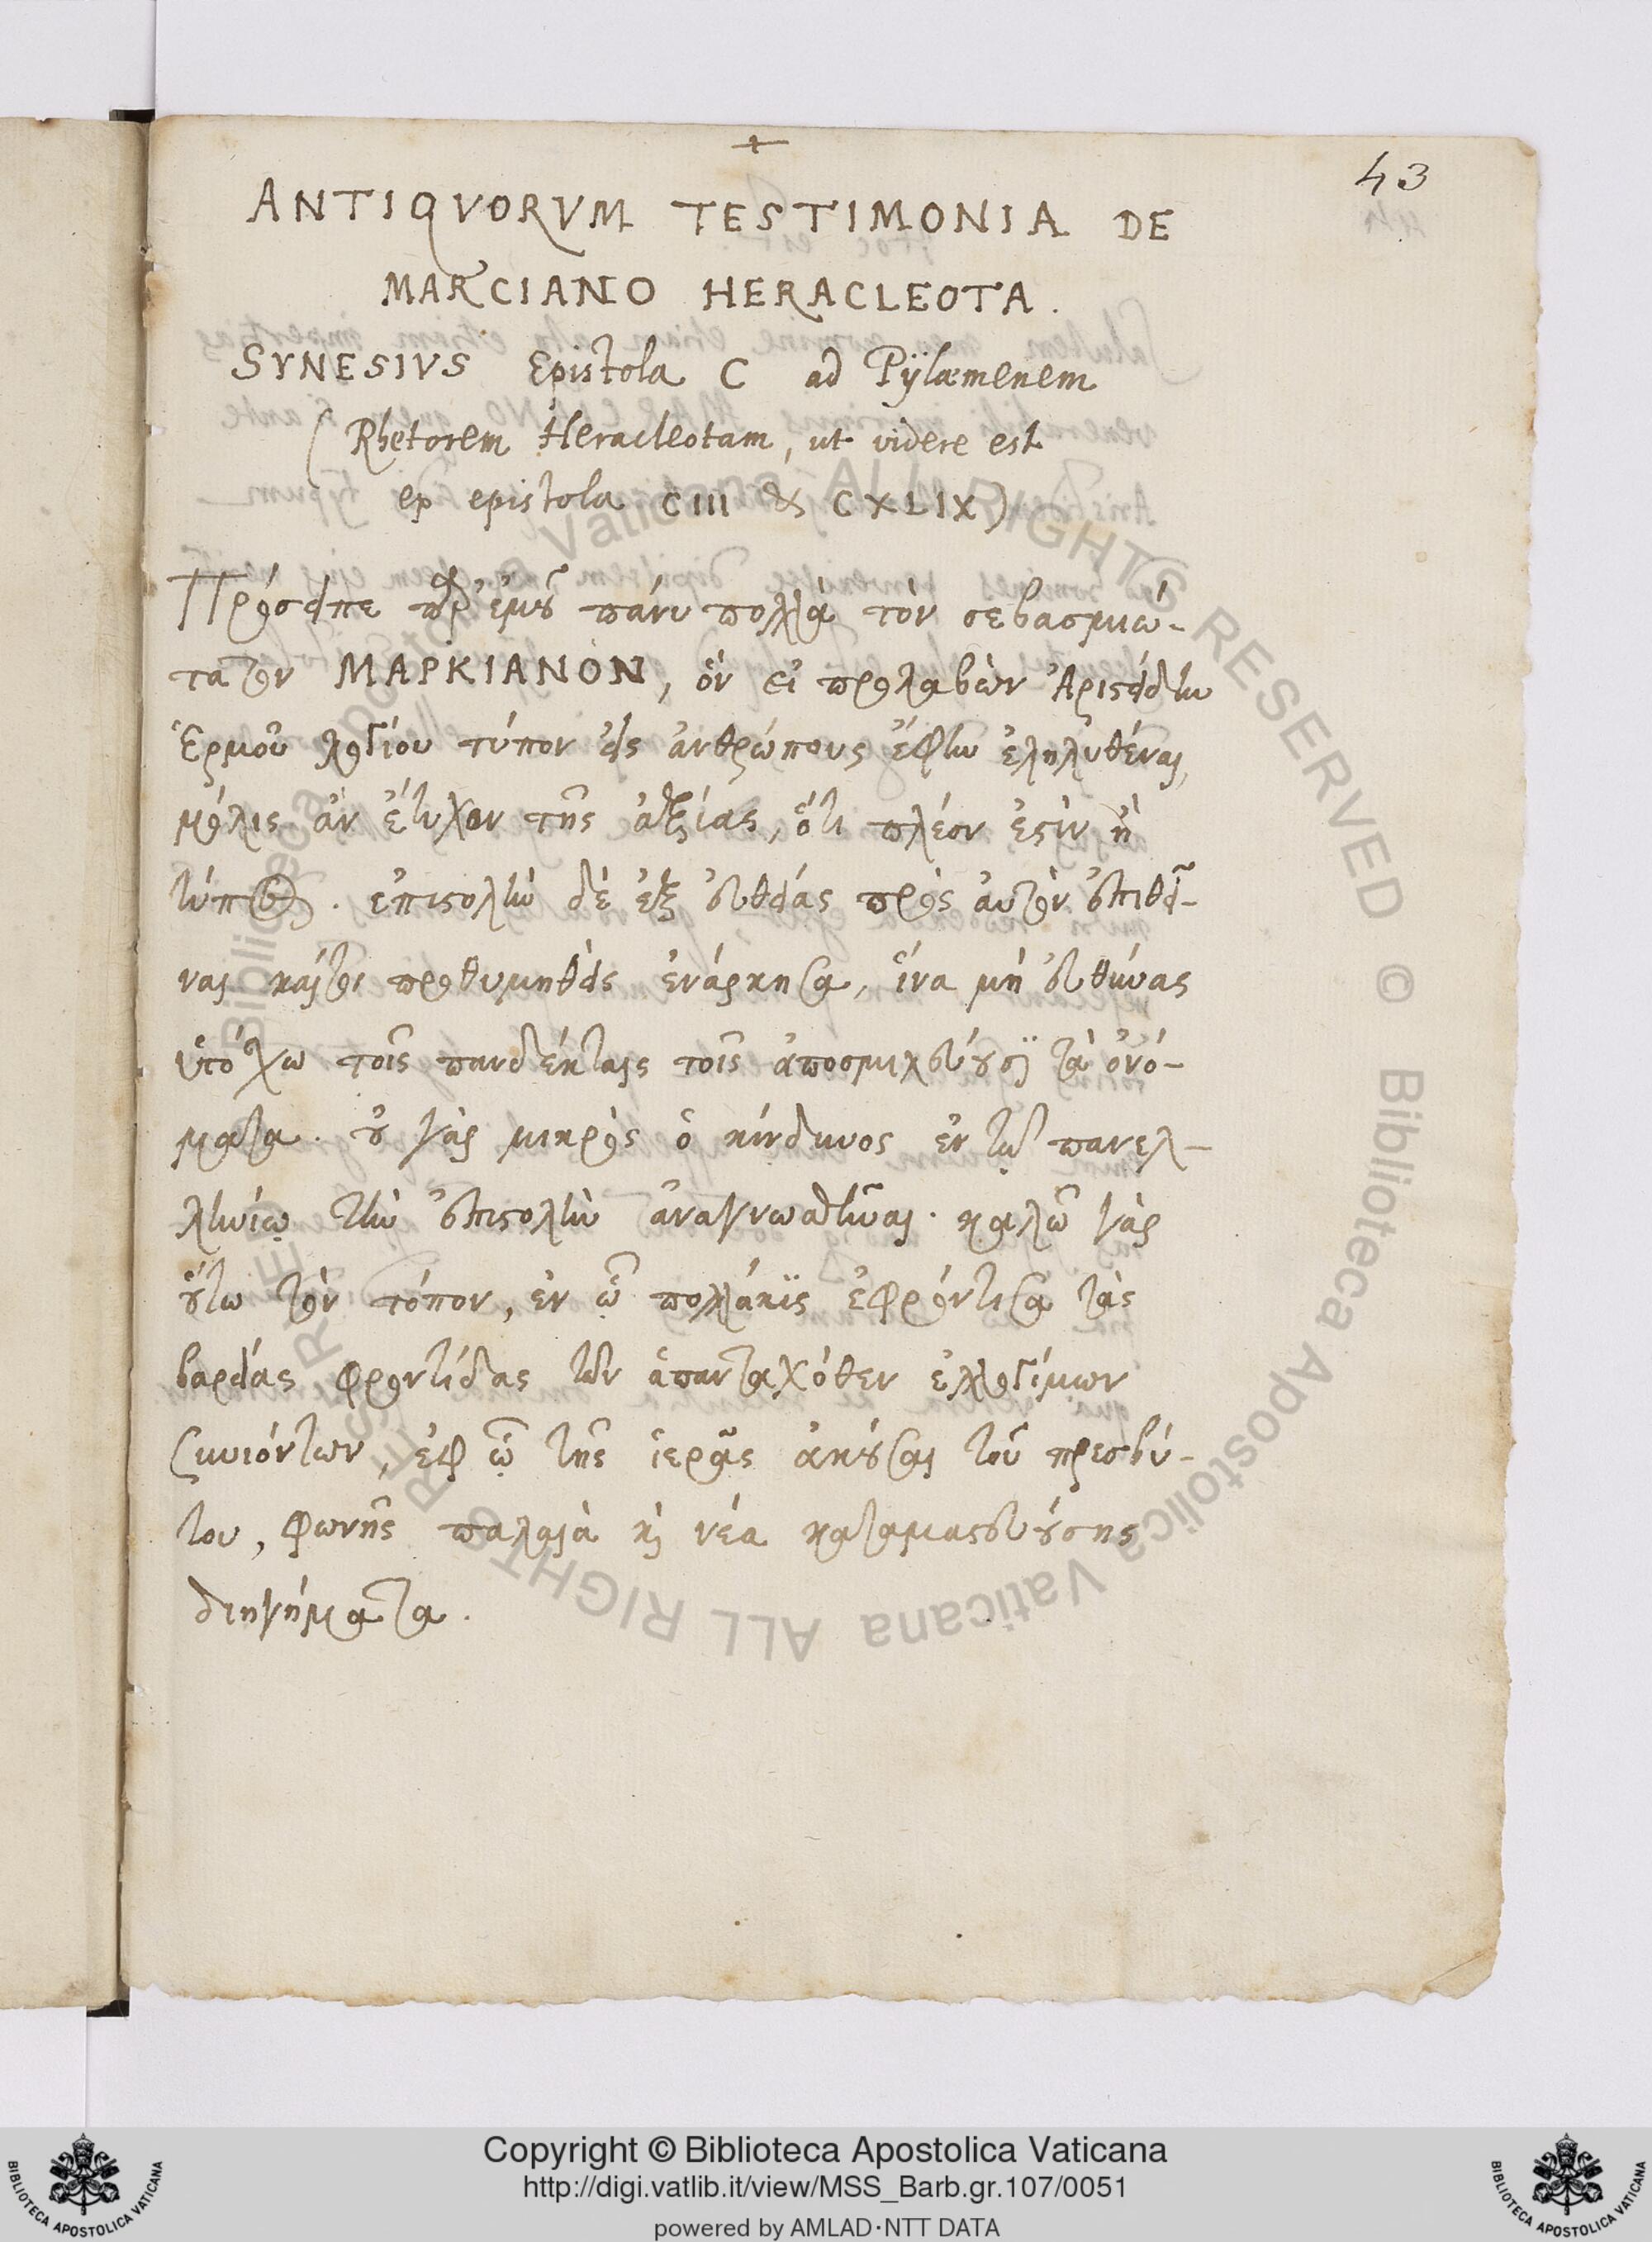 43
ANTIQVORVM TESTIMONIA DE
MARCIANO HERACLEOTA.
SYNESIVS Epistola C ad Pÿlæmenem
(Rhetorem Heracleotam, ut videre est
ex epistola CIII & CXLIX)
Πρόσειπε παρ' ἐμοῦ πάνυ πολλὰ τὸν σεβασμιώ-
τατον ΜΑΡΚΙΑΝΟΝ, ὃν εἰ προλαβὼν Ἀριστείδην
Ἑρμοῦ λογίου τύπον εἰς ἀνθρώπους ἔφην ἐληλυθέναι,
μόλις ἂν ἔτυχον τῆς ἀξίας, ὅτι πλέον ἐστὶν ἢ
τύπος. ἐπιστολὴν δὲ ἐξ εὐθείας πρὸς αὐτὸν ἐπιθεῖ-
ναι καίτοι προθυμηθεὶς ἐνάρκησα, ἵνα μὴ εὐθύνας
ὑπόσχω τοῖς πανδέκταις τοῖς ἀποσμιλεύουσι τὰ ὀνό-
ματα. οὐ γὰρ μικρὸς ὁ κίνδυνος ἐν τῷ πανελ-
ληνίῳ τὴν ἐπιστολὴν ἀναγνωσθῆναι. καλῶ γὰρ
οὕτω τὸν τόπον, ἐν ᾧ πολλάκις ἐφρόντισα τὰς
βαρείας φροντίδας τῶν ἁπανταχόθεν ἐλλογίμων
συνιόντων, ἐφ ᾧ τῆς ἱερᾶς ἀκοῦσαι τοῦ πρεσβύ-
του, φωνῆς παλαιὰ καὶ νέα καταμαστευούσης
διηγήματα.
Copyright © Biblioteca Apostolica Vaticana
http://digi.vatlib.it/view/MSS_Barb.gr.107/0051
powered by AMLAD·NTT DATA
Biblioteca Apostolica Vaticana ALL RIGHTS RESERVED © Biblioteca Apostolica Vaticana ALL RIGHTS RESERVED
BIBLIOTECA APOSTOLICA VATICANA
BIBLIOTECA APOSTOLICA VATICANA